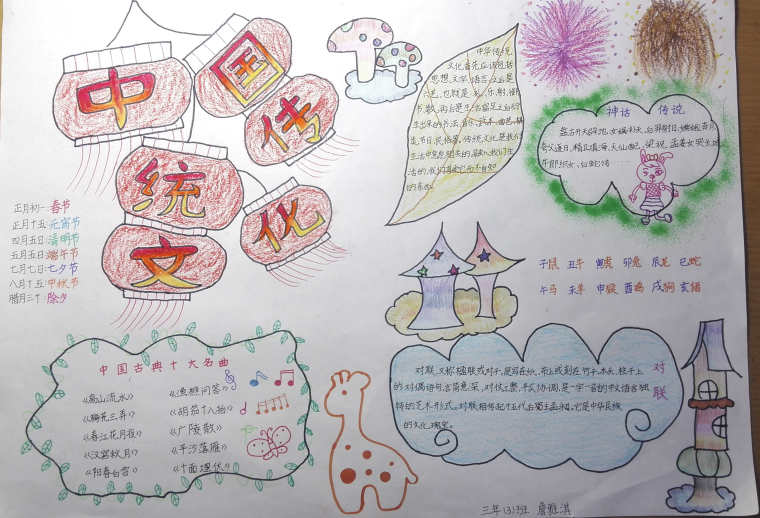 中国传统文化
正月初一·春节
正月十五·元宵节
四月五日·清明节
五月五日·端午节
七月七日·七夕节
八月十五·中秋节
腊月三十·除夕
中华传统
文化首先应该包括
思想、文字、语言、之后是
六艺,也就是礼、乐、射、御
书、数,再后是生活富足之后衍
生出来的书法、音乐、武术、曲艺、棋
类、节日、民俗等。传统文化是我们
生活中息息相关的,融入我们生
神话 传说
盘古开天辟地、女娲补天、后羿射日、嫦娥奔月
夸父逐日、精卫填海、天仙配、梁祝、孟姜女哭长城
牛郎织女、白蛇传
子鼠 丑牛 寅虎 卯兔 辰龙 巳蛇
午马 未羊 申猴 酉鸡 戌狗 亥猪
中国古典十大名曲
《高山流水》 《渔樵问答》
《梅花三弄》 《胡笳十八拍》
《春江花月夜》 《广陵散》
《汉宫秋月》 《平沙落雁》
《阳春白雪》 《十面埋伏》
对联
对联,又称楹联或对子,是写在纸、布上或刻在竹子、木头、柱子上
的对偶语句言简意深,对仗工整,平仄协调,是一字一音的中文语言独
特的艺术形式。对联相传起于五代后蜀主孟昶。它是中华民族
的文化瑰宝。
三年(3)班